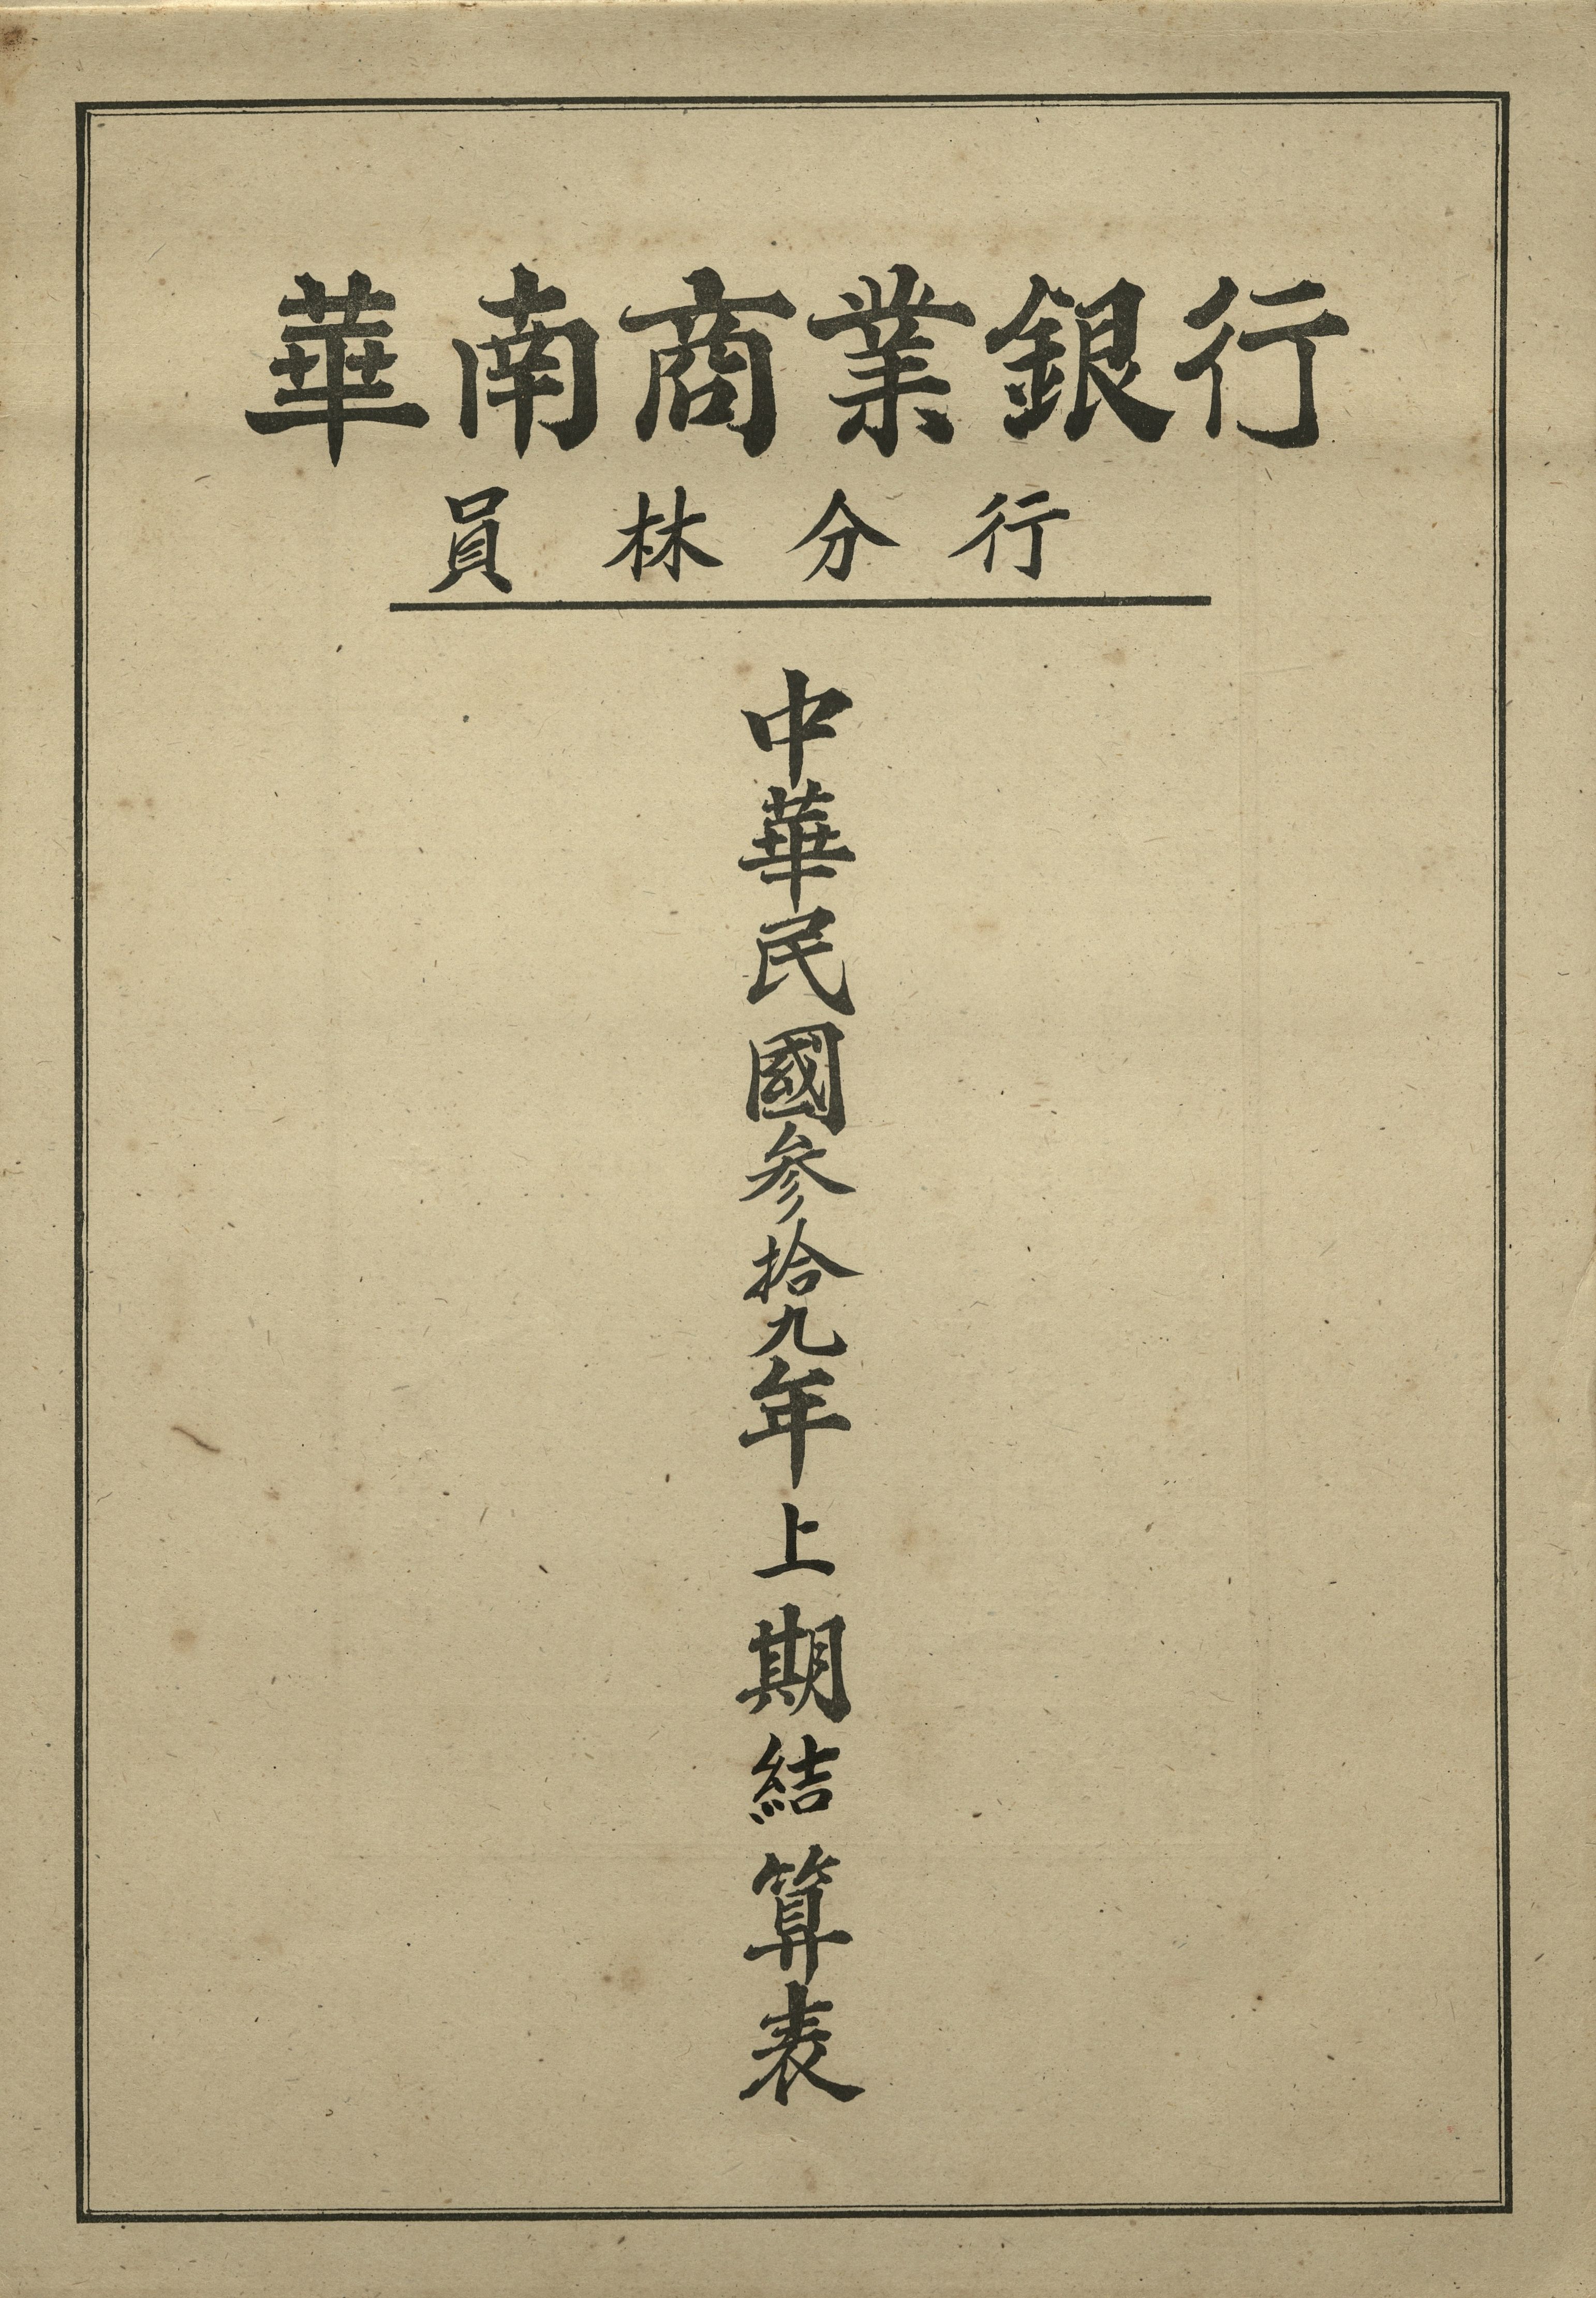 華南商業銀行
員林分行
中華民國参拾九年上期結算表